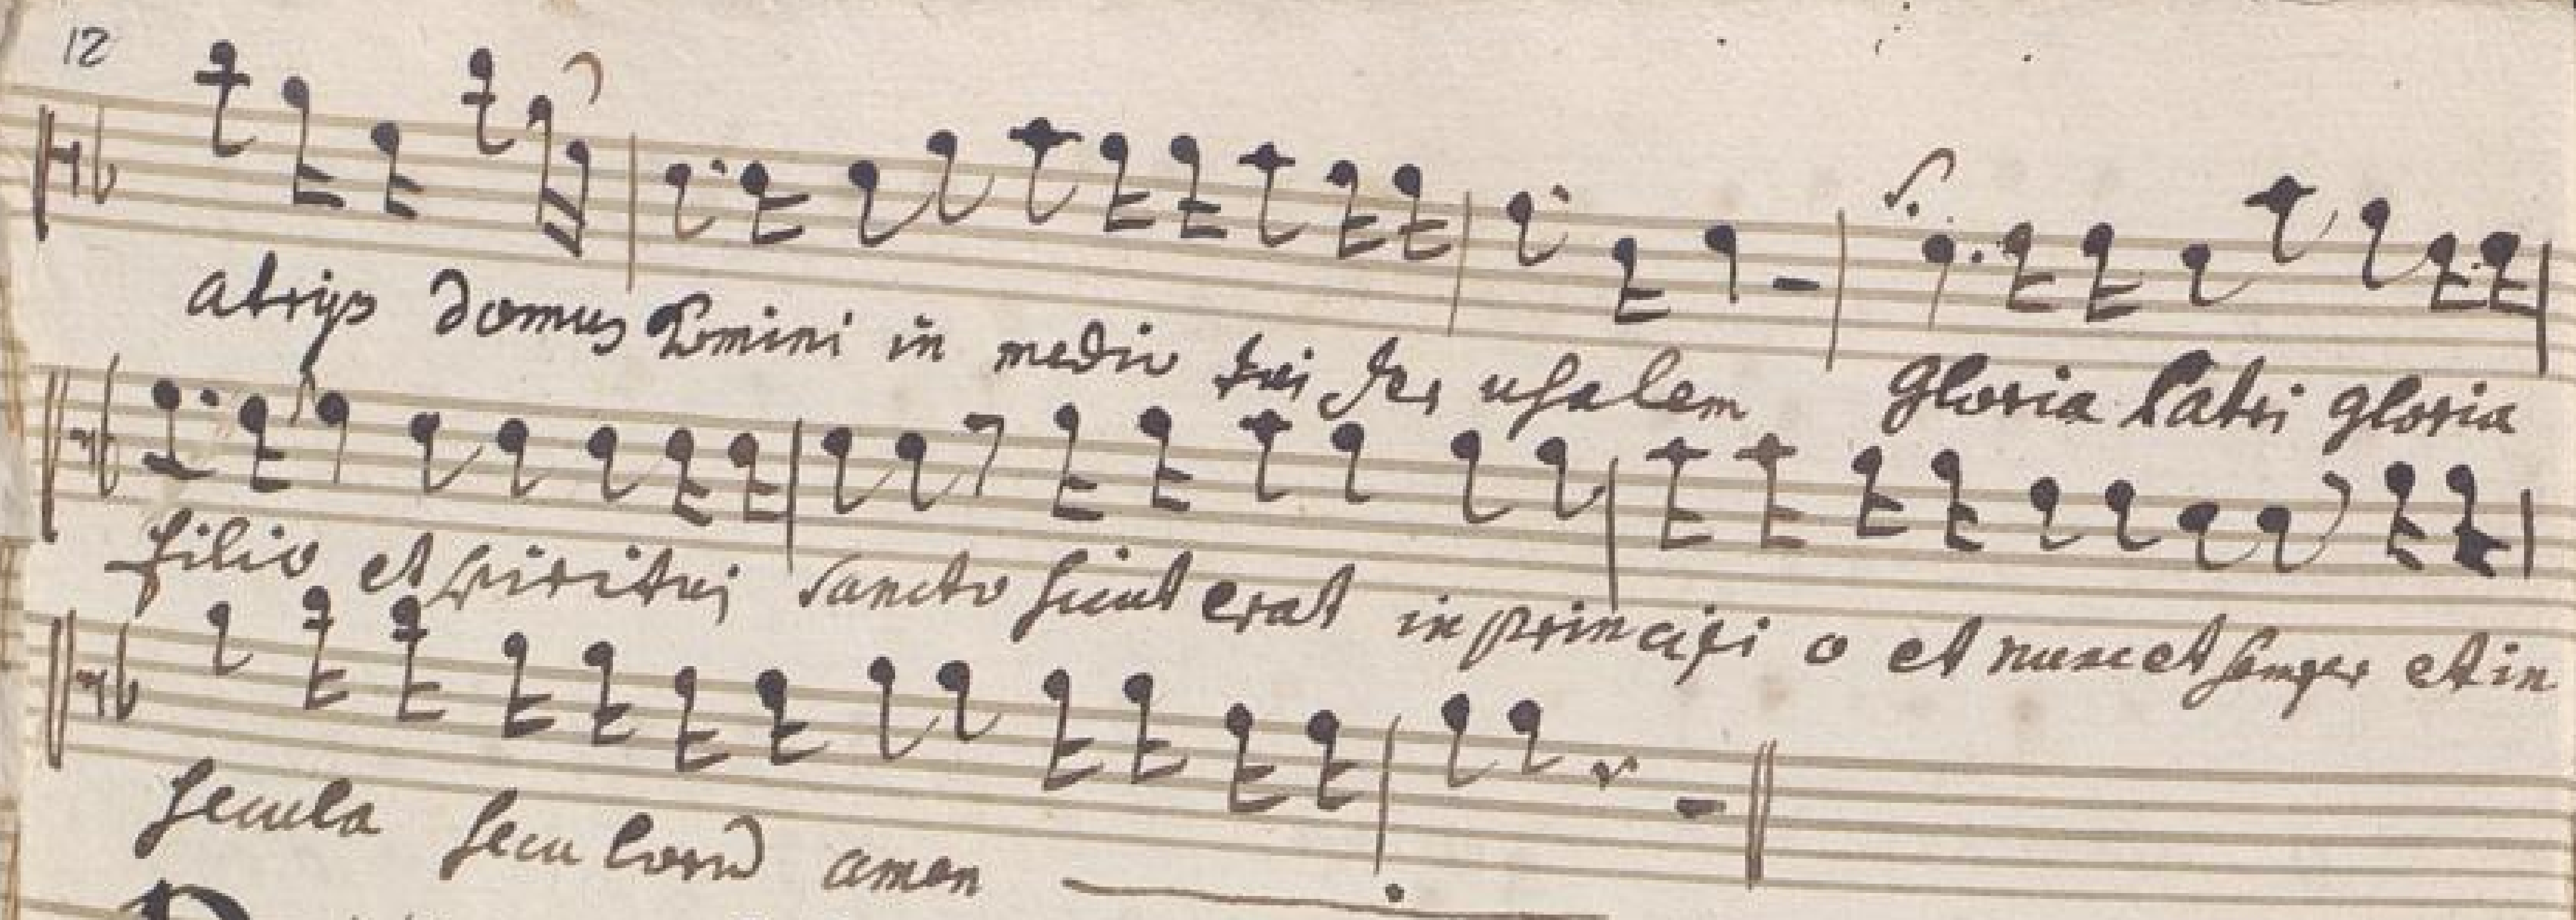 12
atrijs domus Domini in medio tui Jer usalem Gloria Patri gloria
filio et spiritui sancto sicut erat in principi o et nunc et semper et in
secula seculorū amen